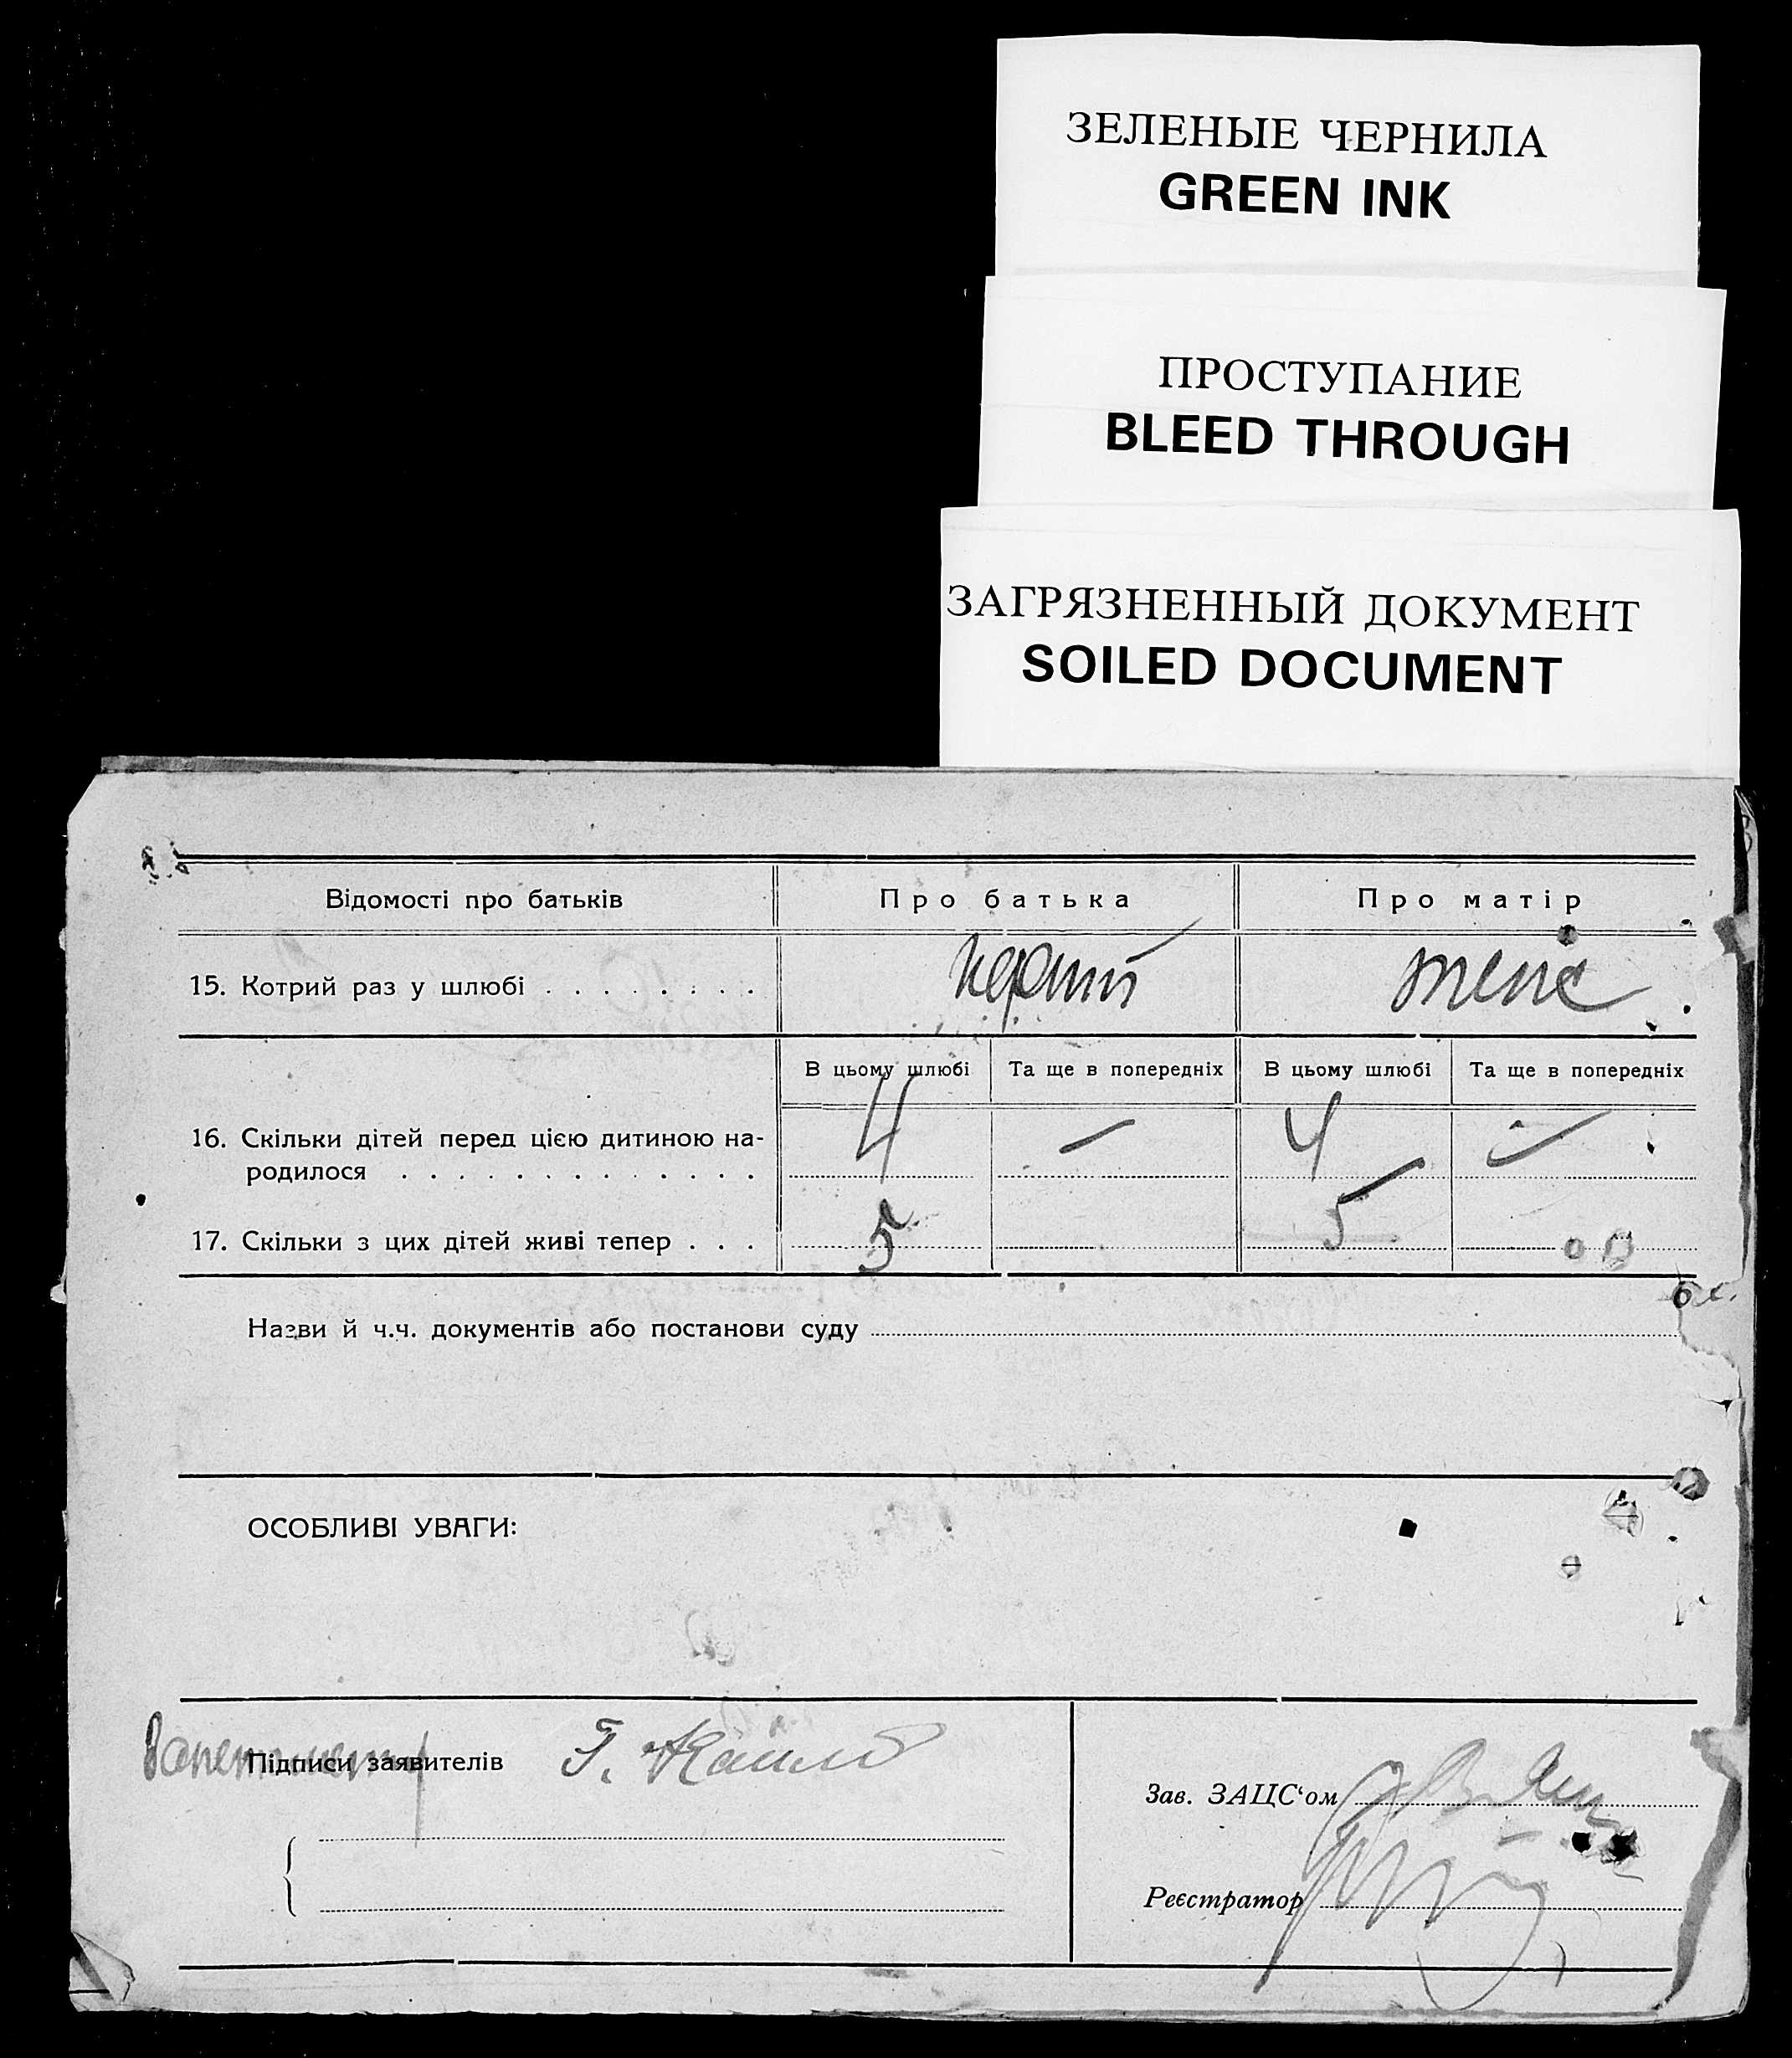 ЗЕЛЕНЫЕ ЧЕРНИЛА
GREEN INK
ПРОСТУПАНИЕ
BLEED THROUGH
ЗАГРЯЗНЕННЫЙ ДОКУМЕНТ
SOILED DOCUMENT
Відомості про батьків Про батька Про матір
15. Котрий раз у шлюбі . . . . . . . . перший теж
В цьому шлюбі Та ще в попередніх В цьому шлюбі Та ще в попередніх
16. Скільки дітей перед цією дитиною на-
родилося . . . . . . . . . . . . . 4 — 4 —
17. Скільки з цих дітей живі тепер . . . 5 5
Назви й ч.ч. документів або постанови суду
ОСОБЛИВІ УВАГИ:
Підписи заявителів
Зав. ЗАЦС‘ом
Реєстратор